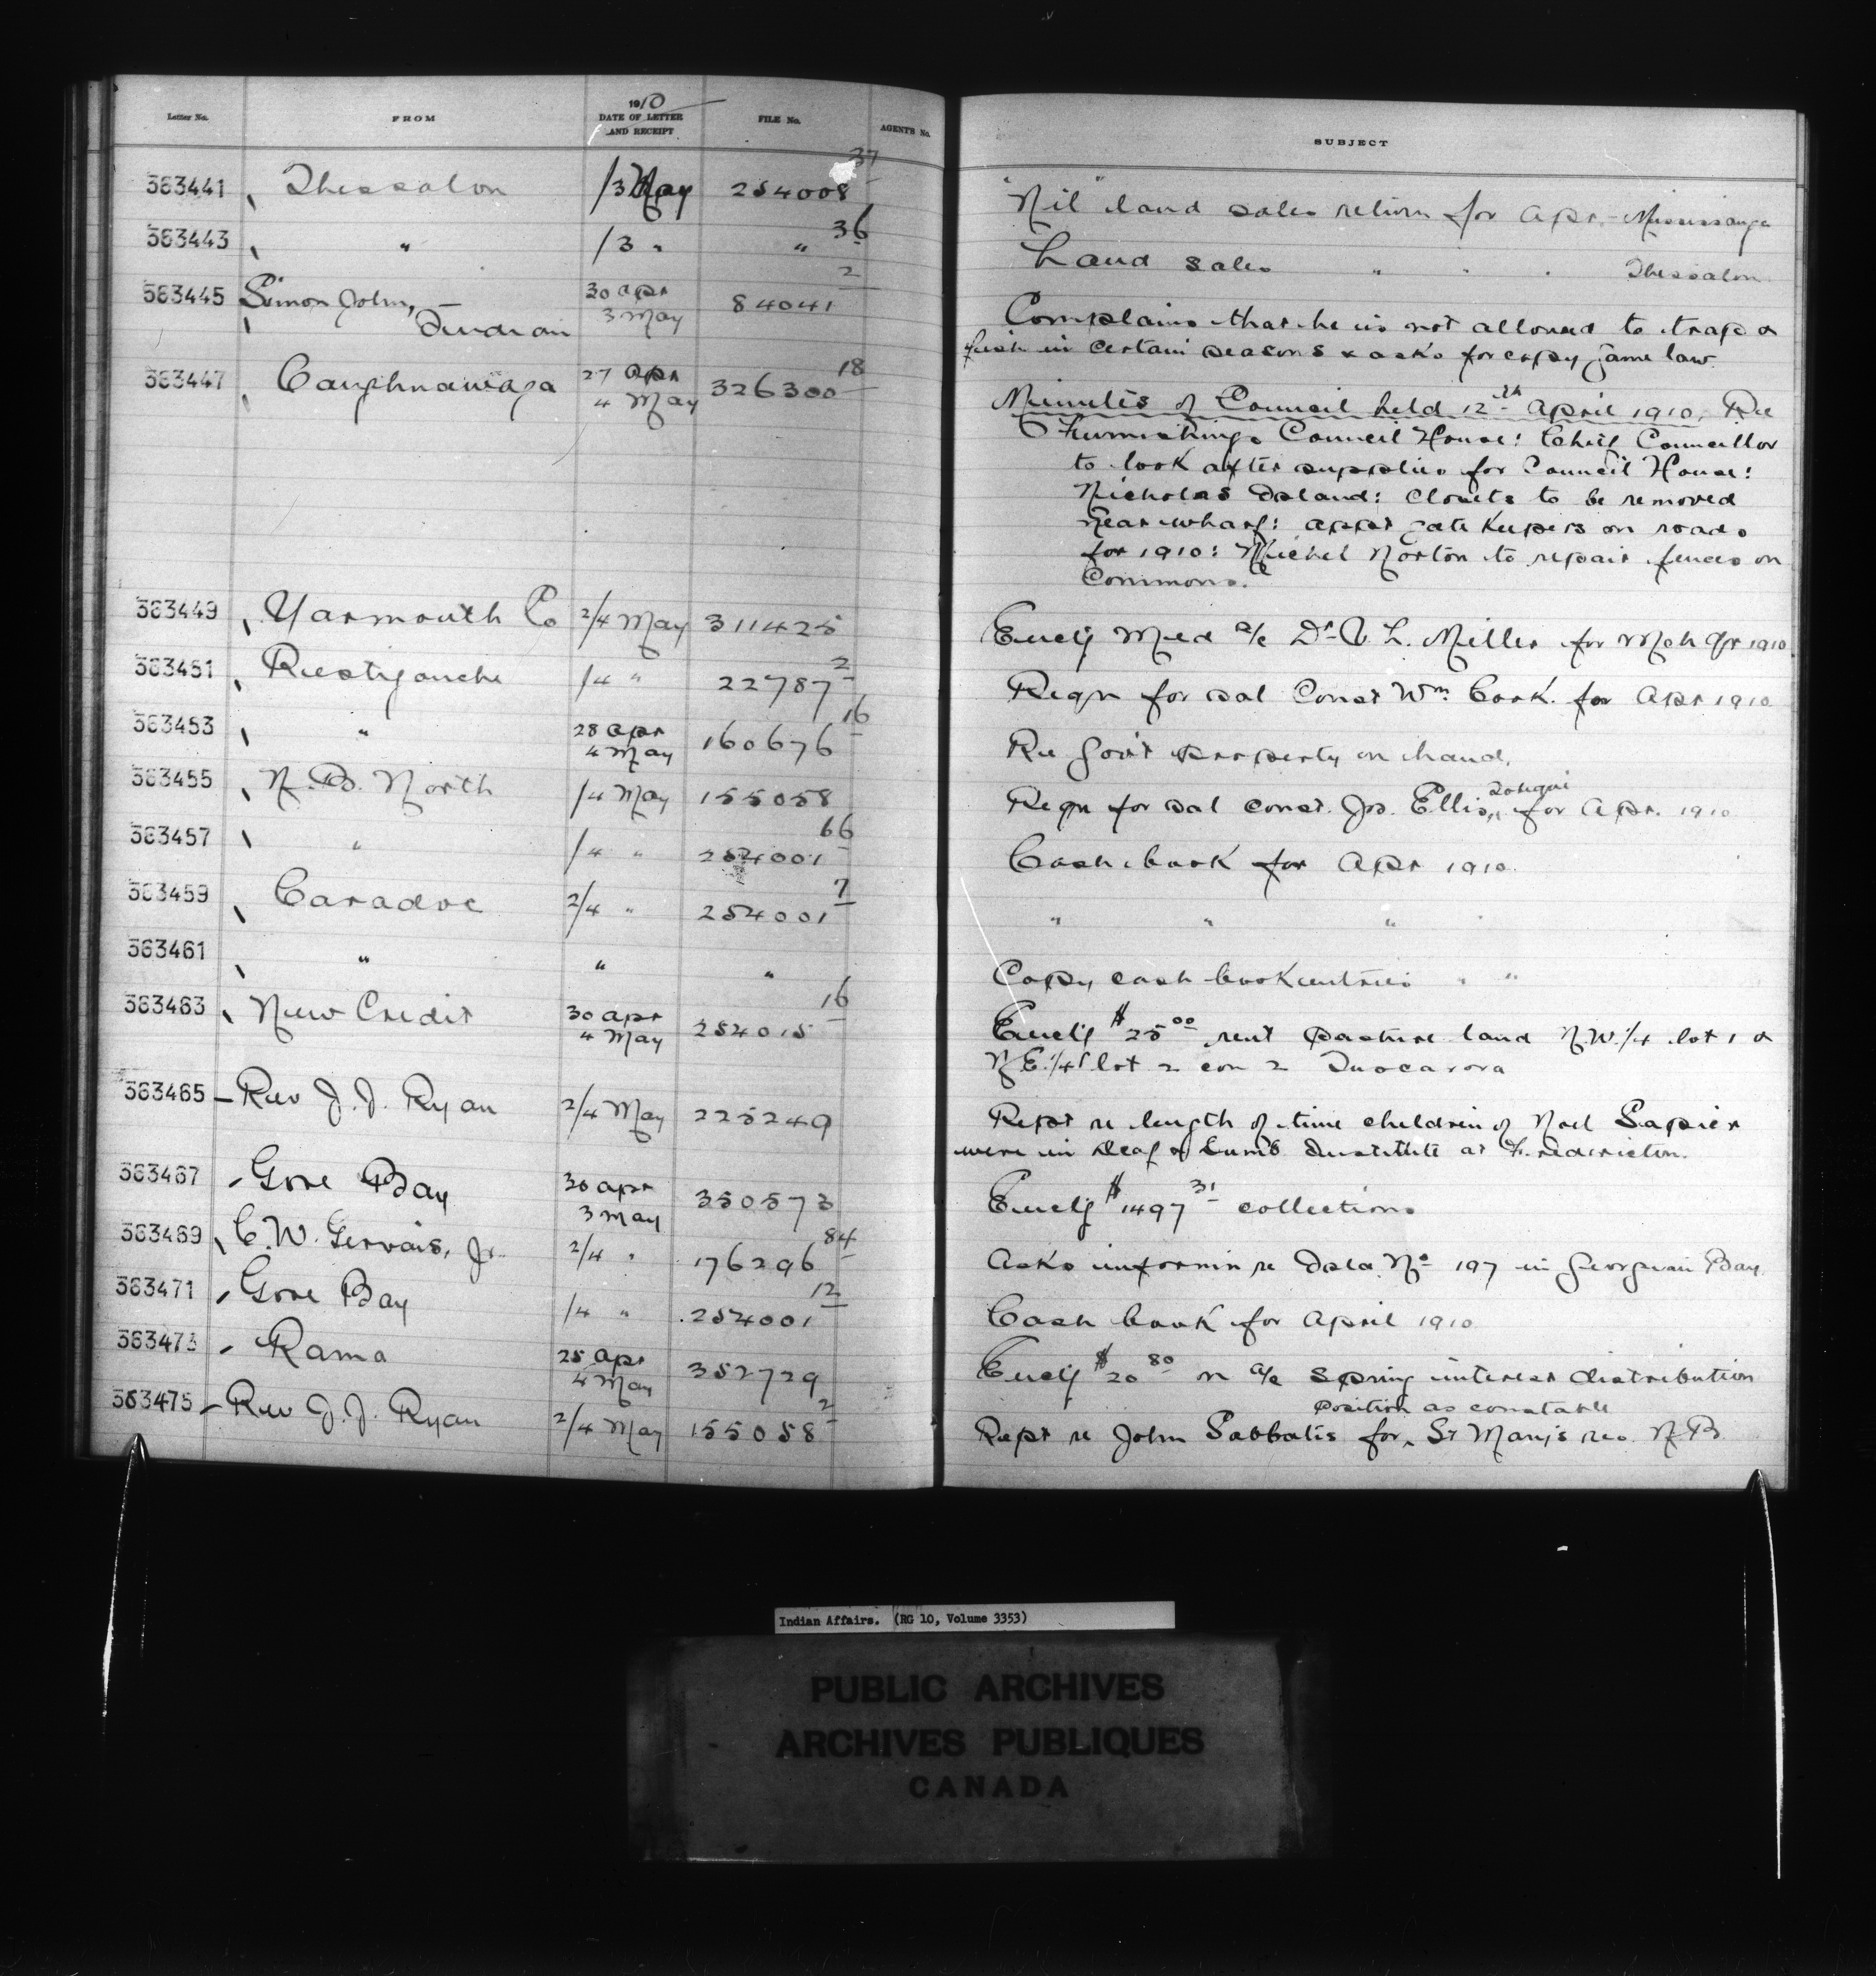 Letter No. FROM 1910 DATE OF LETTER AND RECEIPT FILE No. AGENTS No. SUBJECT
363441 Thessalon 1/3 May 254008 37 "Nil" land sales return for Apr. - Mississauga
363443 " 1/3 " " 36 Land sales " " " Thessalon
363445 Simon John, — Indian 30 Apr 3 May 84041 2 Complains that he is not allowed to trap &
fish in certain seasons & asks for copy game law.
363447 Caughnawaga 27 Apr 4 May 326300 18 Minutes of Council held 12th April 1910, Re
Furnishings Council House: Chief Councillor
to look after supplies for Council House:
Nicholas Island: Closets to be removed
near wharf: appt gate keepers on roads
for 1910: Michel Norton to repair fences on
Commons.
363449 Yarmouth Co 2/4 May 311425 Encl'g Med a/c Dr L. Miller for Mch Qr 1910
363451 Restigouche 1/4 " 22787 2 Reqn for sal Const Wm. Cook. for Apr 1910
363453 " 28 Apr 4 May 160676 16 Re Gov't property on hand.
363455 N.B. North 1/4 May 155058 Reqn for sal const. Jos. Ellis, for Apr. 1910
363457 " 1/4 " 254001 66 Cash book for Apr 1910.
363459 Caradoc 2/4 " 254001 7 " " "
363461 " " " Copy cash book entries " "
363463 New Credit 30 Apr 4 May 254015 16 Encl'g $25.00 rent pasture land N.W. 1/4 lot 1 &
N.E. 1/4 lot 2 con 2 Tuscarora
363465 Rev J. J. Ryan 2/4 May 225249 Rept re length of time children of Noel Sapier
were in Deaf & Dumb Institute at Fredericton.
363467 Gore Bay 30 Apr 3 May 350573 Encl'g $1497.31 collections
363469 C. W. Gervais, Jr. 2/4 " 176296 84 Asks informn re Isld No 197 in Georgian Bay.
363471 Gore Bay 1/4 " 254001 12 Cash book for April 1910
363473 Rama 25 Apr 4 May 352729 Encl'g $20.80 on a/c spring interest distribution
363475 Rev J. J. Ryan 2/4 May 155058 2 Rept re John Sabbatis for position as constable St Mary's res. N.B.
Indian Affairs. (RG 10, Volume 3353)
PUBLIC ARCHIVES
ARCHIVES PUBLIQUES
CANADA